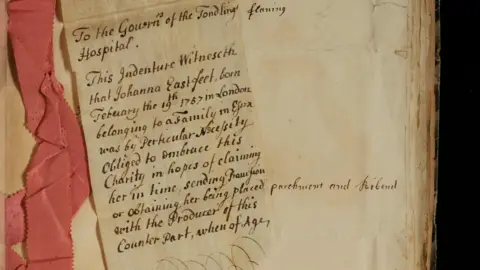 To the Governrs of the Foundling flaning
Hospital.
This Indenture Witnesseth
that Johanna Eastfeet, born
February the 19th 1757 in London
belonging to a Family in Essex
was by Perticular Necessity
Obliged to embrace this
Charity in hopes of claiming
her in time, sending
or obtaining her being placed parchment and Ribend
with the Producer of this
Counter Part, when of Age,